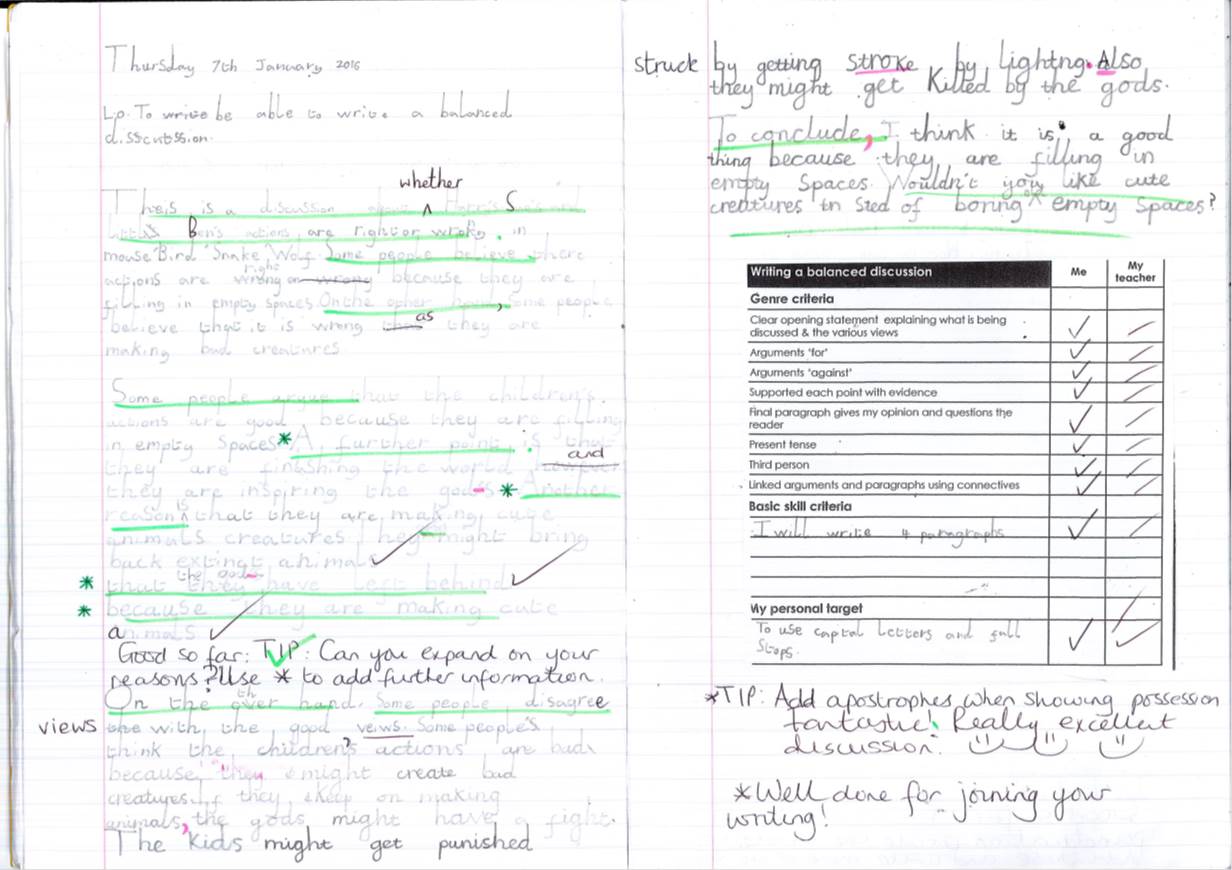 Thursday 7th January 2016
L.o. To write be able to write a balanced
disscutssion.
whether
Theis is a discussion about ^ Harris Sue's and
little Ben's actions are right or wrong. in
mouse Bird Snake Wolf. Some people believe there
right
actions are wrong or wrong because they are
filling in empty spaces. On the other hand, Some people
believe that it is wrong as they are
making bad creatures
Some people argue that the children's.
actions are good because they are filling
in empty Spaces * A further point is that
they are finishing the world however and
they are inspiring the gods * Another
reason is that they are making cute
animals creatures. they might bring
back extingt animals
the gods
* that they have left behind
* because they are making cute
animals
Good so far: TIP: Can you expand on your
reasons? Use * to add further information.
On the over hand. Some people disagree
th
views one with the good veiws. Some people's
think the children's actions are bad
because they might create bad
creatures. If they skeep on making
animals, the gods might have a fight.
The kids might get punished
struck by getting stroke by Lightng. Also
they might get Killed by the gods.
To conclude, I think it is a good
thing because they are filling in
empty Spaces. Wouldn't you like cute
creatures in sted of boring ^ empty Spaces?
Writing a balanced discussion Me My teacher
Genre criteria
Clear opening statement explaining what is being
discussed & the various views
Arguments 'for'
Arguments 'against'
Supported each point with evidence
Final paragraph gives my opinion and questions the
reader
Present tense
Third person
Linked arguments and paragraphs using connectives
Basic skill criteria
I will write 4 paragraphs
My personal target
To use capital letters and full
stops.
*TIP: Add apostrophes when showing possession
fantastic! Really excellent
discussion.
*Well done for joining your
writing!